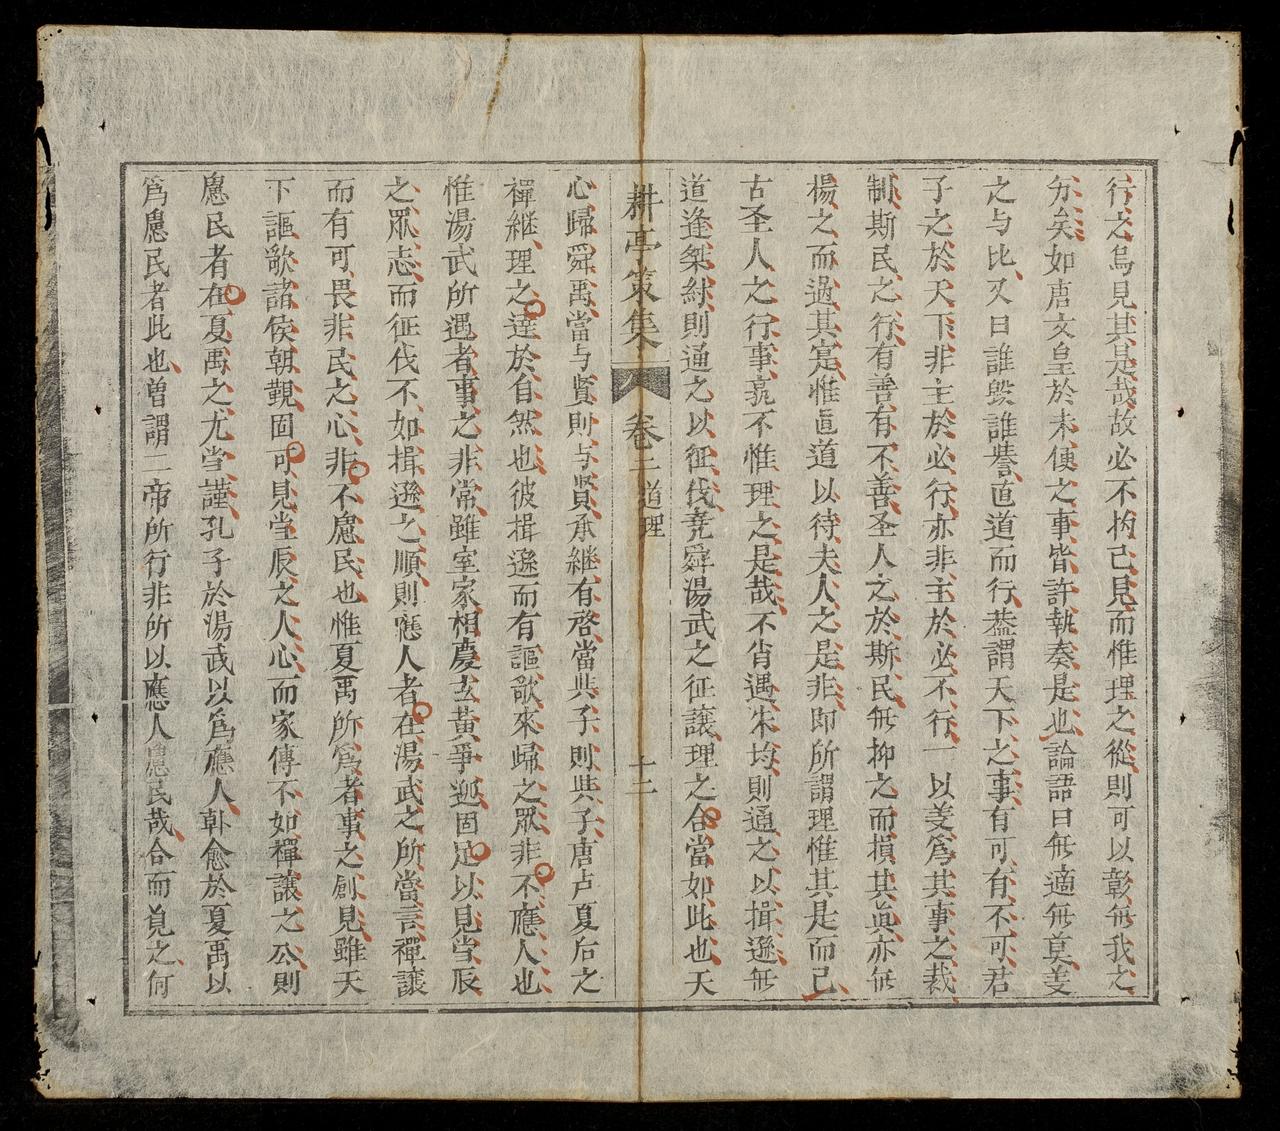 行之烏見其是哉故必不拘己見而惟理之從則可以彰無我之
分矣如唐文皇於未便之事皆許執奏是也論語曰無適無莫㕥
之与比又曰誰毀誰譽直道而行蓋謂天下之事有可有不可君
子之於天下非主於必行亦非主於必不行一以㕥爲其事之裁
制斯民之行有善有不善圣人之於斯民無抑之而損其眞亦無
楊之而過其寔惟直道以待夫人之是非即所謂理惟其是而已
古圣人之行事孰不惟理之是哉不肖遇朱均則通之以揖遜無
道逢桀紂則通之以征伐堯舜湯武之征讓理之合當如此也天
耕亭策集 卷二道理 十二
心歸舜禹當与賢則与賢承継有啓當與子則與子唐虞夏后之
禪継理之達於自然也彼揖遜而有謳歌來歸之眾非不應人也
惟湯武所遇者事之非常雖室家相慶玄黃爭迎固足以見当辰
之眾志而征伐不如揖遜之順則應人者在湯武之所當言禪讓
而有可畏非民之心非不慮民也惟夏禹所爲者事之創見雖天
下謳歌諸侯朝覲固可見当辰之人心而家傳不如禪讓之公則
慮民者在夏禹之尤当謹孔子於湯武以爲應人韓愈於夏禹以
爲慮民者此也曽謂二帝所行非所以應人慮民哉合而覓之何